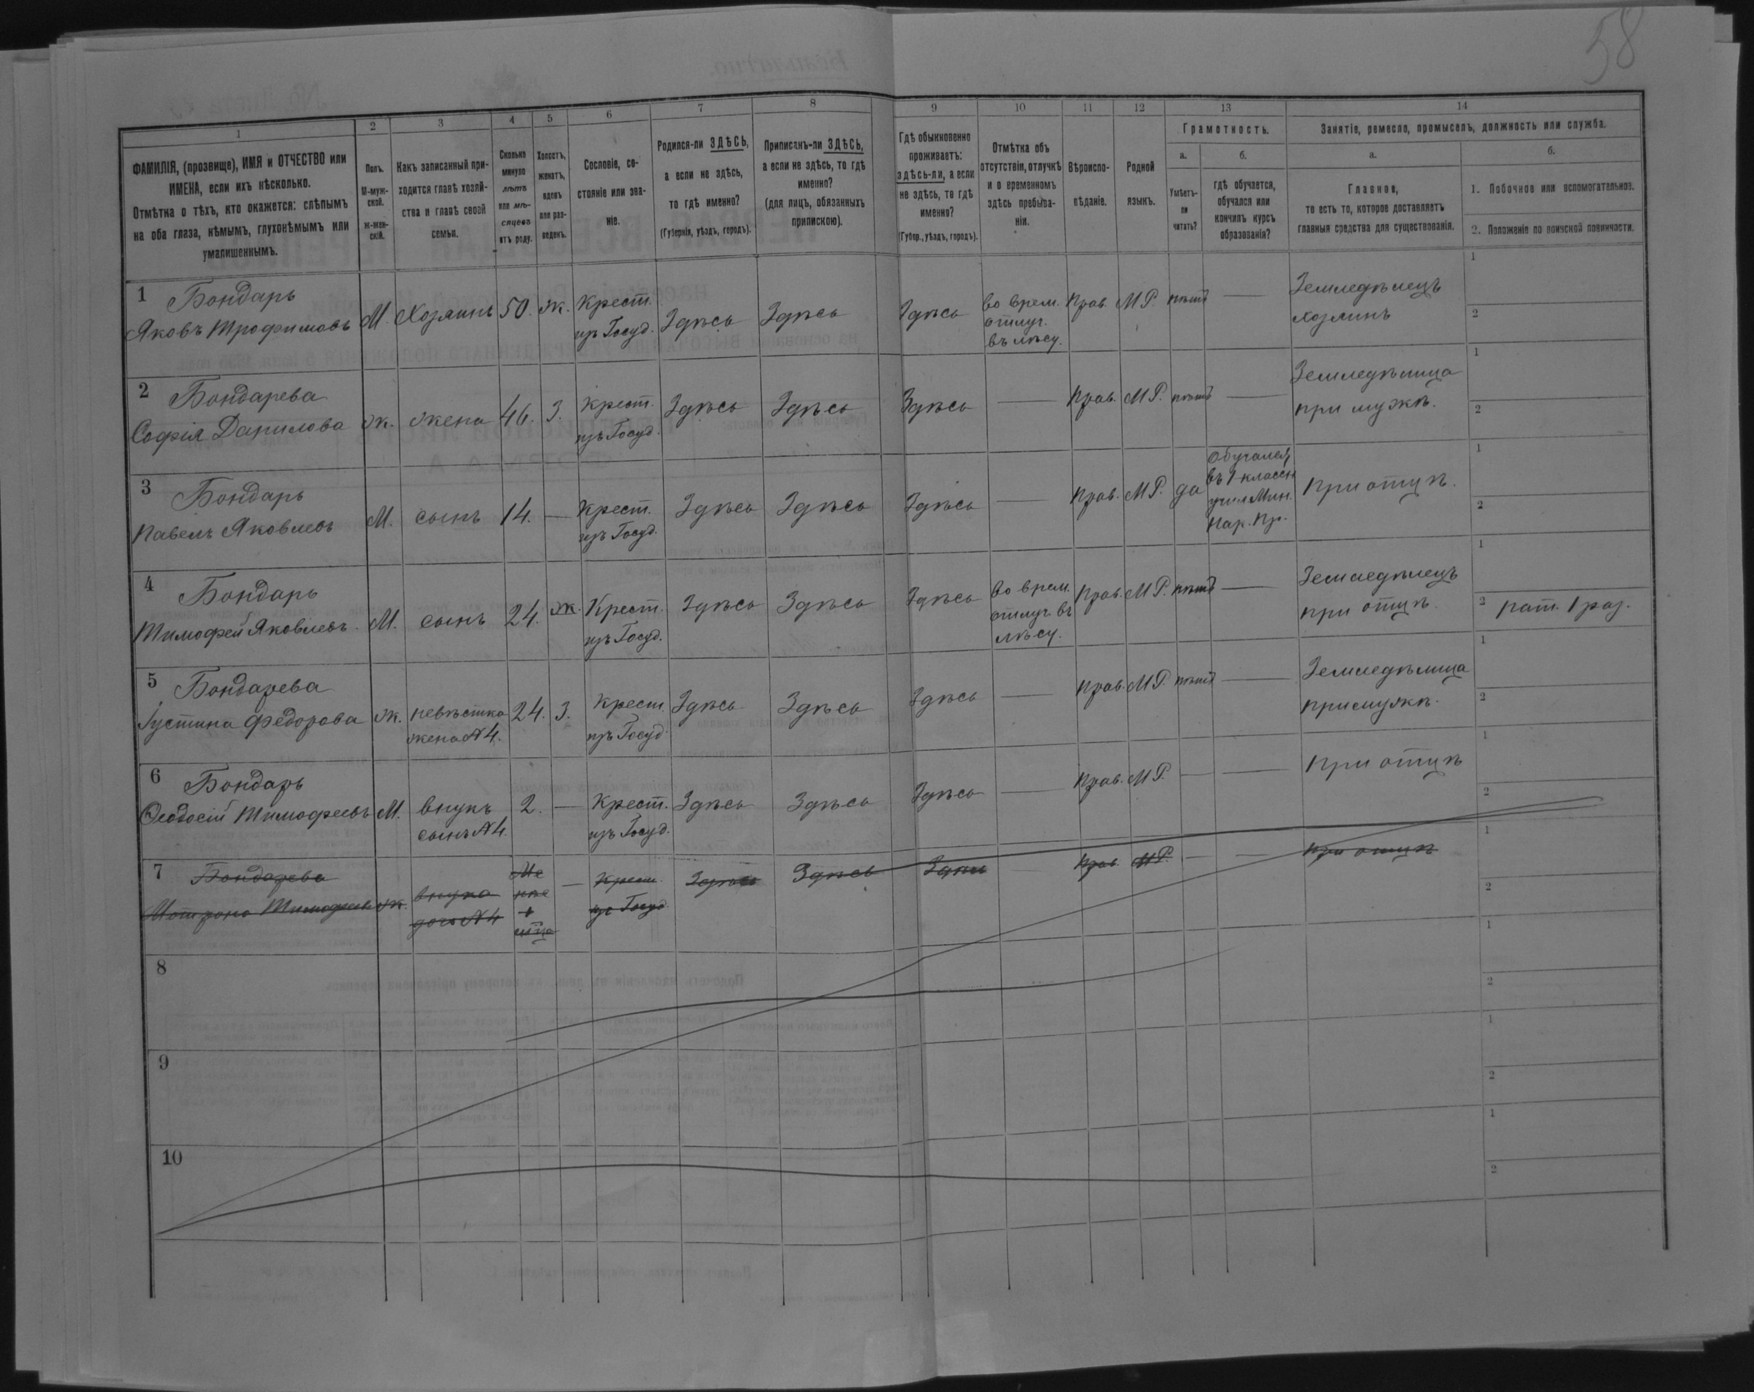 58
1
2
3
4
5
6
7
8
9
10
11
12
13
14
ФАМИЛІЯ, (прозвище), ИМЯ и ОТЧЕСТВО или
ИМЕНА, если ихъ нѣсколько.
Отмѣтка о тѣхъ, кто окажется: слѣпымъ
на оба глаза, нѣмымъ, глухонѣмымъ или
умалишеннымъ.
Полъ.
М-муж-
ской.
Ж-жен-
скій.
Какъ записанный при-
ходится главѣ хозяй-
ства и главѣ своей
семьи.
Сколько
минуло
лѣтъ
или мѣ-
сяцевъ
отъ роду.
Холостъ,
женатъ,
вдовъ
или раз-
веденъ.
Сословіе, со-
стояніе или зва-
ніе.
Родился-ли ЗДѢСЬ,
а если не здѣсь,
то гдѣ именно?
(Губернія, уѣздъ, городъ).
Приписанъ-ли ЗДѢСЬ,
а если не здѣсь, то гдѣ
именно?
(для лицъ, обязанныхъ
припискою).
Гдѣ обыкновенно
проживаетъ:
здѣсь-ли, а если
не здѣсь, то гдѣ
именно?
(Губер., уѣздъ, городъ).
Отмѣтка объ
отсутствіи, отлучкѣ
и о временномъ
здѣсь пребыва-
ніи.
Вѣроиспо-
вѣданіе.
Родной
языкъ.
Грамотность.
а.
Умѣетъ-
ли
читать?
б.
гдѣ обучается,
обучался или
кончилъ курсъ
образованія?
Занятіе, ремесло, промыселъ, должность или служба.
а.
Главное,
то есть то, которое доставляетъ
главныя средства для существованія.
б.
1. Побочное или вспомогательное.
2. Положеніе по воинской повинности.
1 Бондарь
Яковъ Трофимовъ М. Хозяинъ 50. Ж. Крест.
изъ Госуд. Здѣсь Здѣсь Здѣсь во врем.
отлуч.
въ лѣсу. Прав. М.Р. нѣтъ — Земледѣлецъ
хозяинъ 1
2
2 Бондарева
Софія Данилова Ж. жена 46. З. Крест.
изъ Госуд. Здѣсь Здѣсь Здѣсь — Прав. М.Р. нѣтъ — Земледѣлица
при мужѣ. 1
2
3 Бондарь
Павелъ Яковлевъ М. сынъ 14. — Крест.
изъ Госуд. Здѣсь Здѣсь Здѣсь — Прав. М.Р. да Обучался
въ 1 классн
учил. Мин.
Нар. Пр. При отцѣ. 1
2
4 Бондарь
Тимофей Яковлевъ. М. сынъ 24. Ж. Крест.
изъ Госуд. Здѣсь Здѣсь Здѣсь во врем.
отлуч. въ
лѣсу. Прав. М.Р. нѣтъ — Земледѣлецъ
при отцѣ. 1
2 рат. 1 раз.
5 Бондарева
Іустина Федорова Ж. невѣстка
жена №4. 24. З. Крест.
изъ Госуд. Здѣсь Здѣсь Здѣсь — Прав. М.Р. нѣтъ — Земледѣлица
при мужѣ. 1
2
6 Бондарь
Ѳеодосій Тимофеевъ М. внукъ
сынъ №4. 2. — Крест.
изъ Госуд. Здѣсь Здѣсь Здѣсь — Прав. М.Р. — — При отцѣ 1
2
7 Бондарева
Мотрона Тимофеева Ж. внука
дочь №4 — Крест.
изъ Госуд. Здѣсь Здѣсь Здѣсь Прав. М.Р. — — При отцѣ 1
2
8 1
2
9 1
2
10 1
2